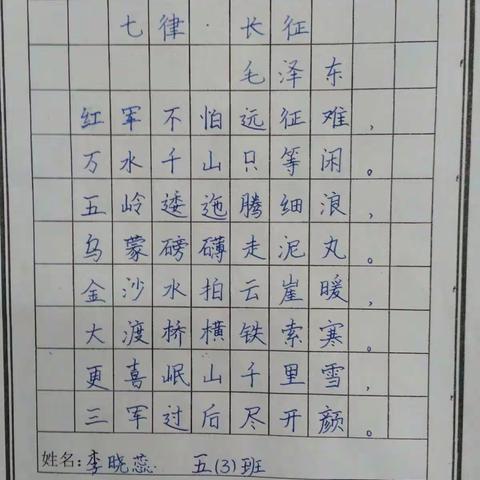 七律·长征
毛泽东
红军不怕远征难，
万水千山只等闲。
五岭逶迤腾细浪，
乌蒙磅礴走泥丸。
金沙水拍云崖暖，
大渡桥横铁索寒。
更喜岷山千里雪，
三军过后尽开颜。
姓名:李晓蕊 五(3)班